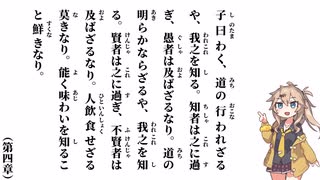 子曰わく、道の行われざる
や、我之を知る。知者は之に過
ぎ、愚者は及ばざるなり。道の
明らかならざるや、我之を知
る。賢者は之に過ぎ、不賢者は
及ばざるなり。人飲食せざる
莫きなり。能く味わいを知るこ
と鮮きなり。
（第四章）